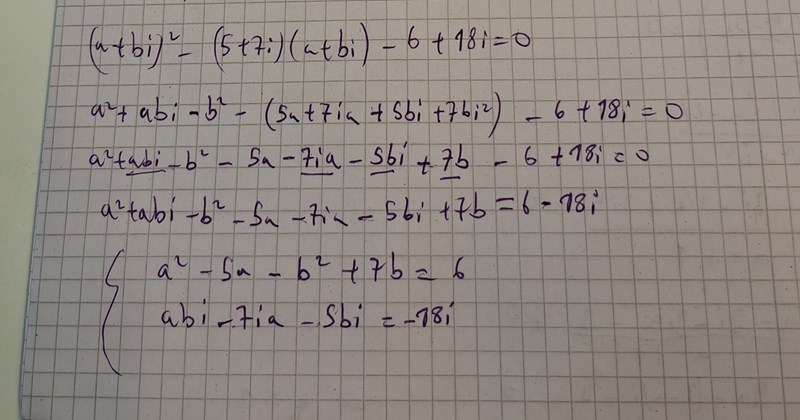 (a+bi)² - (5+7i)(a+bi) - 6 + 18i = 0
a² + abi - b² - (5a + 7ia + 5bi + 7bi²) - 6 + 18i = 0
a² + abi - b² - 5a - 7ia - 5bi + 7b - 6 + 18i = 0
a² + abi - b² - 5a - 7ia - 5bi + 7b = 6 - 18i
a² - 5a - b² + 7b = 6
abi - 7ia - 5bi = -18i